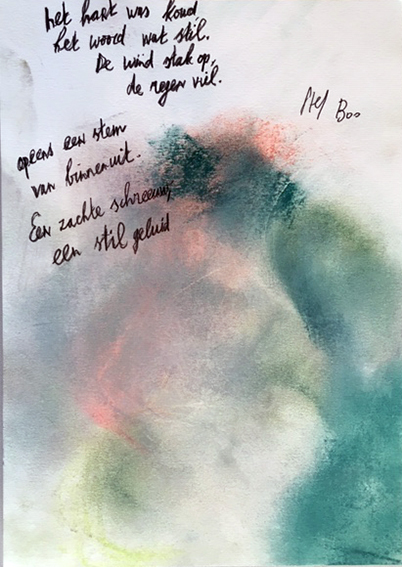 het hart was koud
het woord was stil.
De wind stak op,
de regen viel.
Mel Boo
opeens een stem
van binnenuit.
Een zachte schreeuw,
een stil geluid